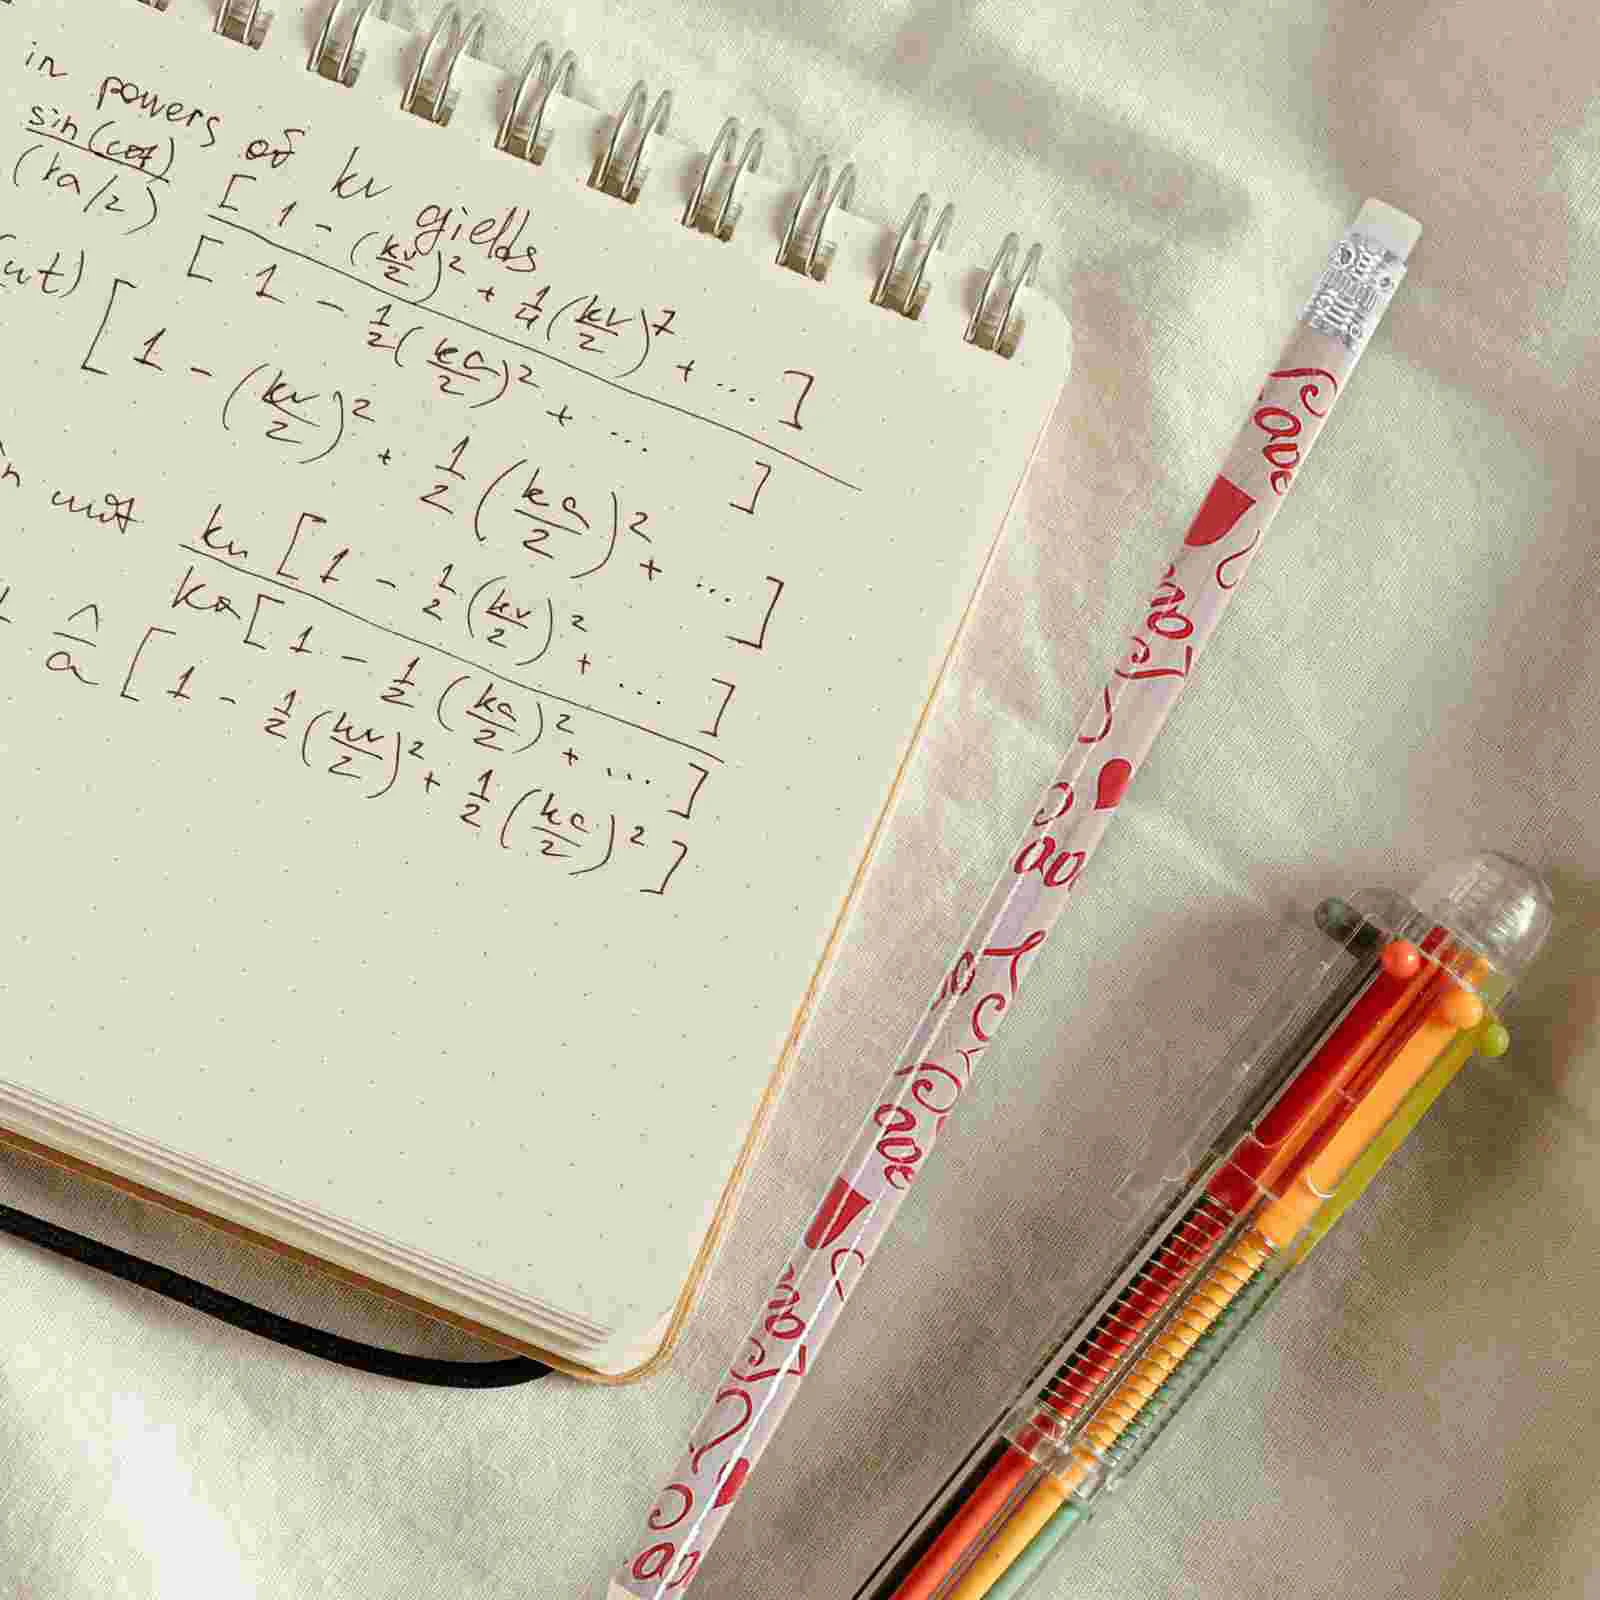 in powers of kr yields
sin(ωt) / (ka/2) [1 - (kr/2)² + 1/4 (kr/2)⁷ + ...] / [1 - 1/2 (ka/2)² + ... ]
(ωt) [1 - (kr/2)² + 1/2 (ka/2)² + ...]
n ωt kr [1 - 1/2 (kr/2)² + ...] / ka [1 - 1/2 (ka/2)² + ...]
^/a [1 - 1/2 (kr/2)² + 1/2 (ka/2)²]
Love
Love
Love
Love